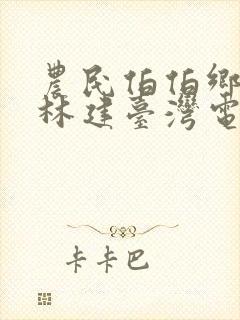 農民伯伯鄉
林建臺灣電
卡卡巴